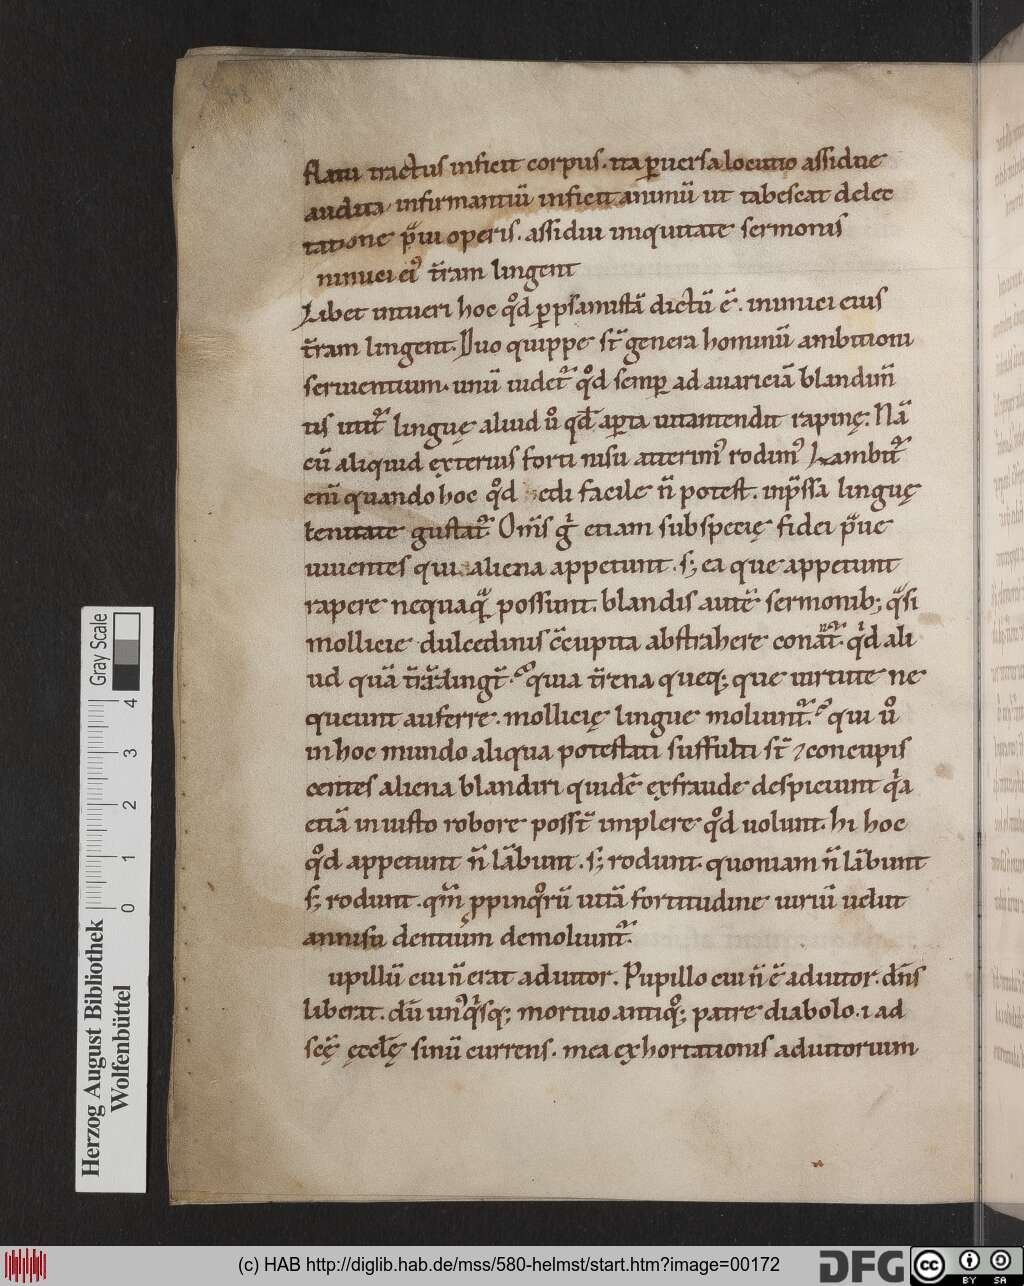 flatu tractus inficit corpus. ita ꝑuersa locutio assidue
audita infirmantiū inficit animū ut tabescat delec
tatione p̄ui operis. assidui iniquitate sermonis
inimici ei᾽ t̄ram lingent
Libet intueri hoc qd̊ ꝑ psamistā dictū ē. inimici eius
t̄ram lingent. Duo quippe st̄ genera hominū ambitioni
seruientium. unū uidet᷑ qd̊ semꝑ ad auariciā blandim̄
tis utit᷑ linguę aliud ů qd̄ aꝑta uiā intendit rapinę. Nā
cū aliquid exterius forti nisu atterim᾽ rodim᾽ Lambit᷑
eni̅ quando hoc qd̊ edi facile n̄ potest. inp̄ssa linguę
lenitate gustat᷑. Om̄s gͥ etiam sub specię fidei p̄ue
uiuentes qui aliena appetunt. s; ea que appetunt
rapere nequaq̄ possunt. blandis autē sermonib; qͣsi
mollicie dulcedinis c̄cupita abstrahere conāt᷑. qͥd ali
ud quā t̄rā lingt̄. quia t̄rena queq; que uirtute ne
queunt auferre. mollicię lingue moliunt᷑. qui ů
in hoc mundo aliqua potestati suffulti st̄ ⁊ concupis
centes aliena blandiri quidē ex fraude despiciunt qͥa
etiā iniusto robore posst̄ implere qd̊ uolunt. hi hoc
qd̊ appetunt n̄ lābunt. s; rodunt. quoniam n̄ lābunt
s; rodunt. qm̄ ꝓpinqͦrū uitā fortitudine uiriū uelut
annisu dentium demoliunt᷑.
upillū cui n̄ erat adiutor. Pupillo cui n̄ ē adiutor. dn̄s
liberat. dū un᾽qͥsq; mortuo antiqͦ; patre diabolo. i ad
scę̄ ęccl̄ę sinū currens. mea exhortationis adiutorium
Herzog August Bibliothek
Wolfenbüttel
Gray Scale
0 1 2 3 4
(c) HAB http://diglib.hab.de/mss/580-helmst/start.htm?image=00172
DFG
cc BY SA